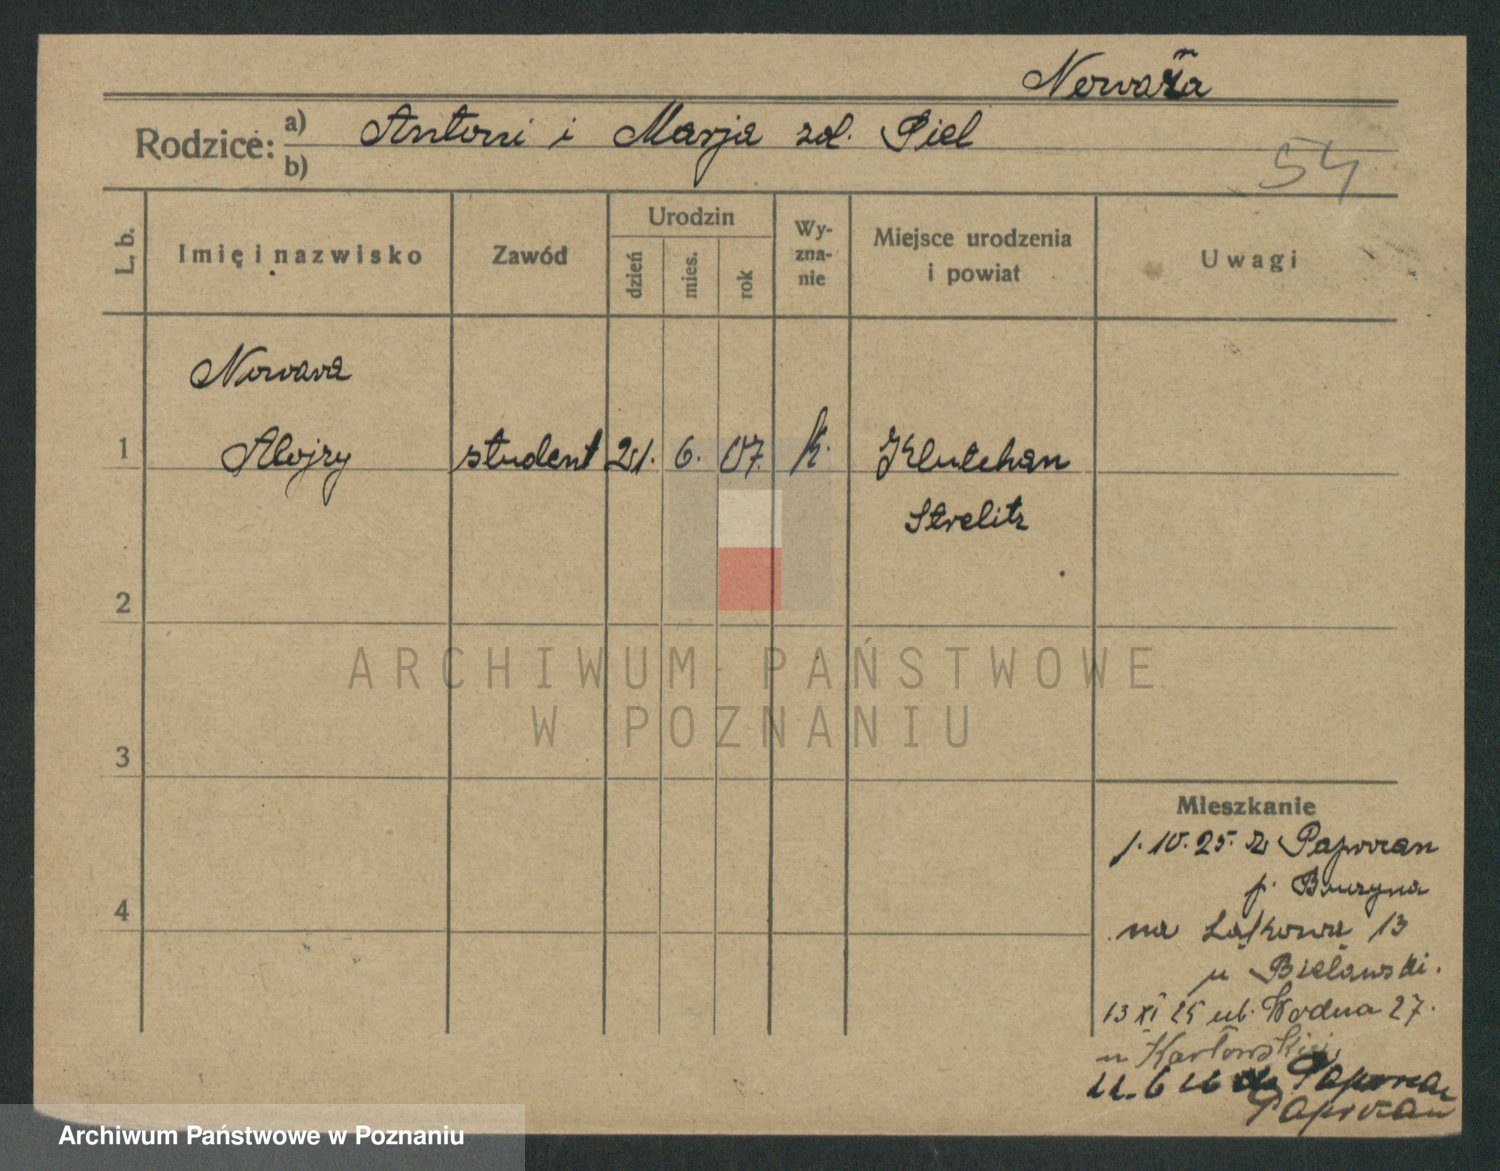 Nowara
Rodzice: a) Antoni i Marja zd. Piel
b)
54
L. b.
Imię i nazwisko
Zawód
Urodzin
dzień
mies.
rok
Wy-
zna-
nie
Miejsce urodzenia
i powiat
Uwagi
Nowara
1 Alojzy student 21. 6. 07. k. Klutchau
Strelitz
2
3
4
Mieszkanie
1. 10. 25. z Paprocan
p. Bourzyna
na Łąkowa 13
u Bielawski.
13 XI 25 ul. Wodna 27.
u Karłowskiej
22. 6 26 do
Paprocan
ARCHIWUM PAŃSTWOWE
W POZNANIU
Archiwum Państwowe w Poznaniu